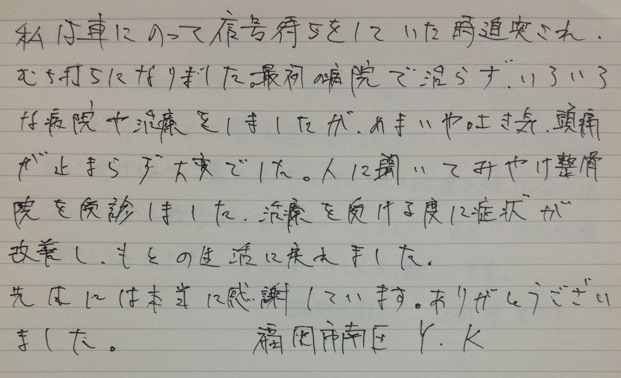 私は車にのって信号待ちをしていた時追突され、
むち打ちになりました。最初の病院で治らず、いろいろ
な病院や治療をしましたが、めまいや吐き気、頭痛
が止まらず大変でした。人に聞いてみやけ整骨
院を受診しました。治療を受ける度に症状が
改善し、もとの生活に戻れました。
先生には本当に感謝しています。ありがとうござい
ました。 福岡市南区 Y.K